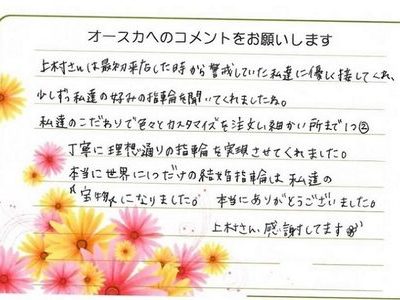 オースカへのコメントをお願いします
上村さんは最初来店した時から警戒していた私達に優しく接してくれ、
少しずつ私達の好みの指輪を聞いてくれましたね。
私達のこだわりで色々とカスタマイズを注文し細かい所まで1つ②
丁寧に理想通りの指輪を実現させてくれました。
本当に世界に1つだけの結婚指輪は私達の
"宝物"になりました。 本当にありがとうございました。
上村さん、感謝してます